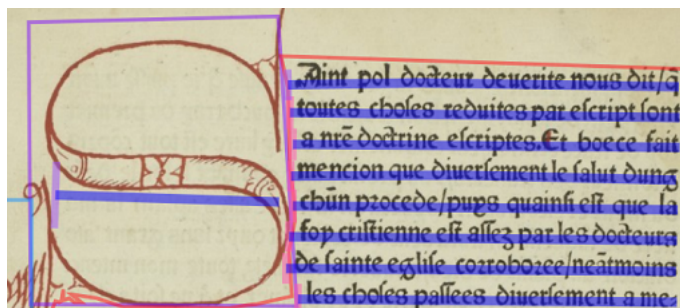 S
Aint pol docteur deuerite nous dit/q̃
toutes choses reduites par escript sont
a nr̃e doctrine escriptes. Et boece fait
mencion que diuersement le salut dung
chũn procede/puys quainsi est que la
foy cristienne est assez par les docteurs
de sainte eglise corroboree/neãtmoins
les choses passees diuersement a me